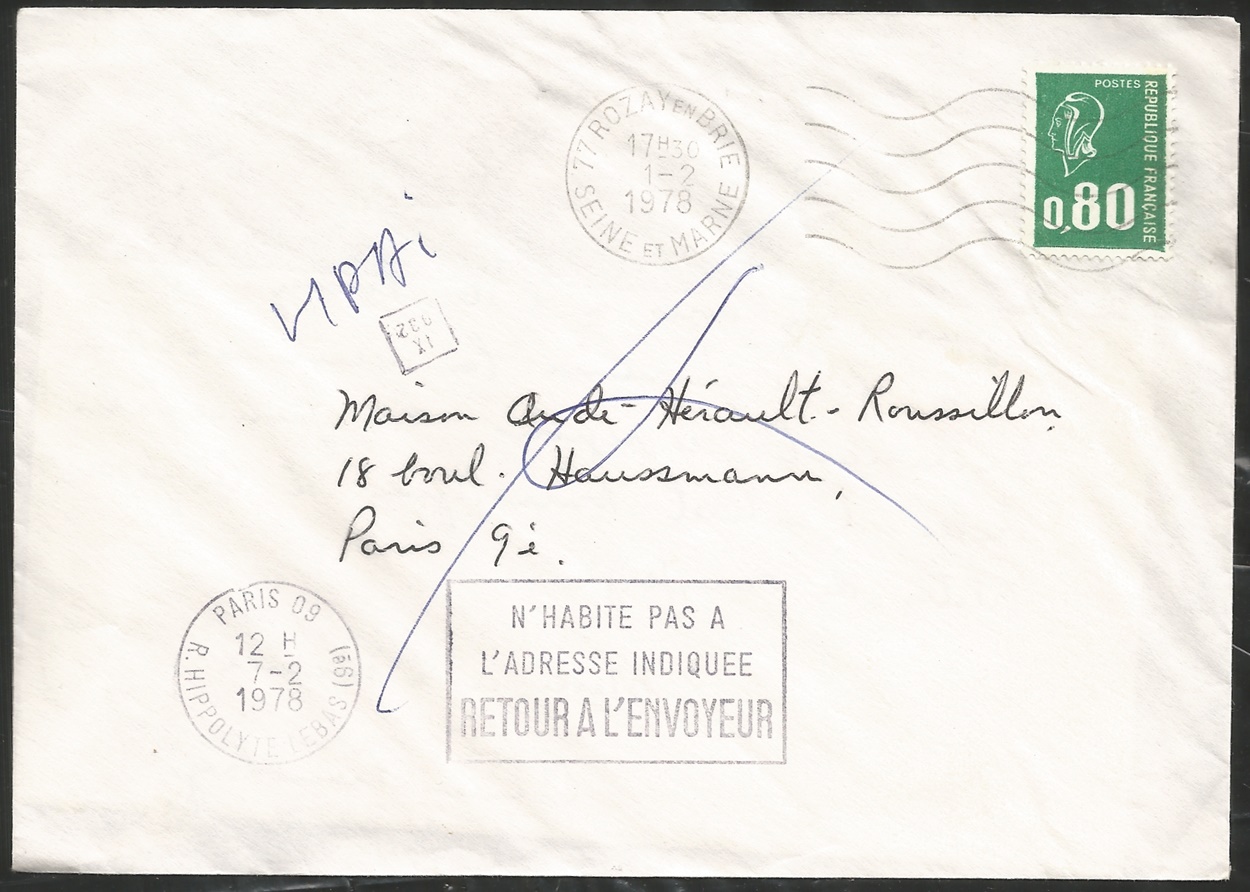 POSTES
REPUBLIQUE FRANÇAISE
0,80
77 ROZAY EN BRIE
17H30
1-2
1978
SEINE ET MARNE
IX
932
Maison Aude-Hérault-Roussillon,
18 boul. Haussmann,
Paris 9è.
PARIS 09
12 H
7-2
1978
R. HIPPOLYTE LEBAS (9è)
N'HABITE PAS A
L'ADRESSE INDIQUEE
RETOUR A L'ENVOYEUR